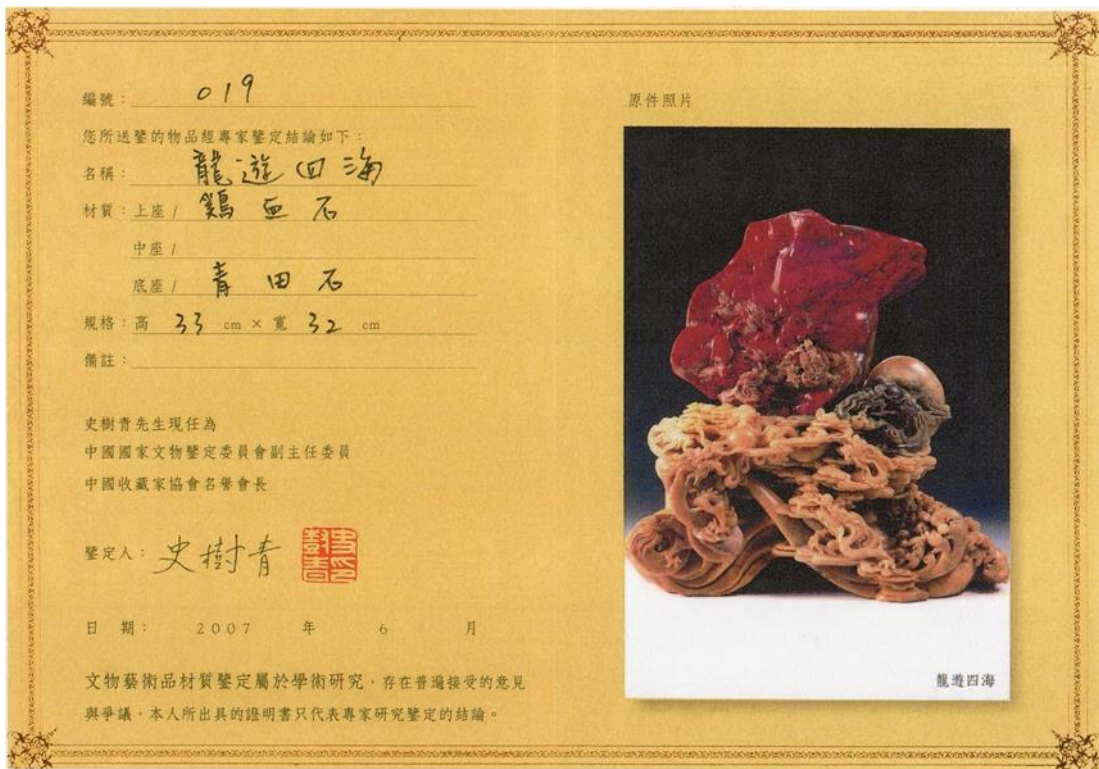 編號：019
您所送鑒的物品經專家鑒定結論如下：
名稱：龍遊四海
材質：上座/ 鷄血石
中座/
底座/ 青田石
規格：高 33 cm × 寬 32 cm
備註：
史樹青先生現任為
中國國家文物鑒定委員會副主任委員
中國收藏家協會名譽會長
鑒定人：史樹青
史印樹青
日 期： 2007 年 6 月
文物藝術品材質鑒定屬於學術研究，存在普遍接受的意見
與爭議，本人所出具的證明書只代表專家研究鑒定的結論。
原件照片
龍遊四海